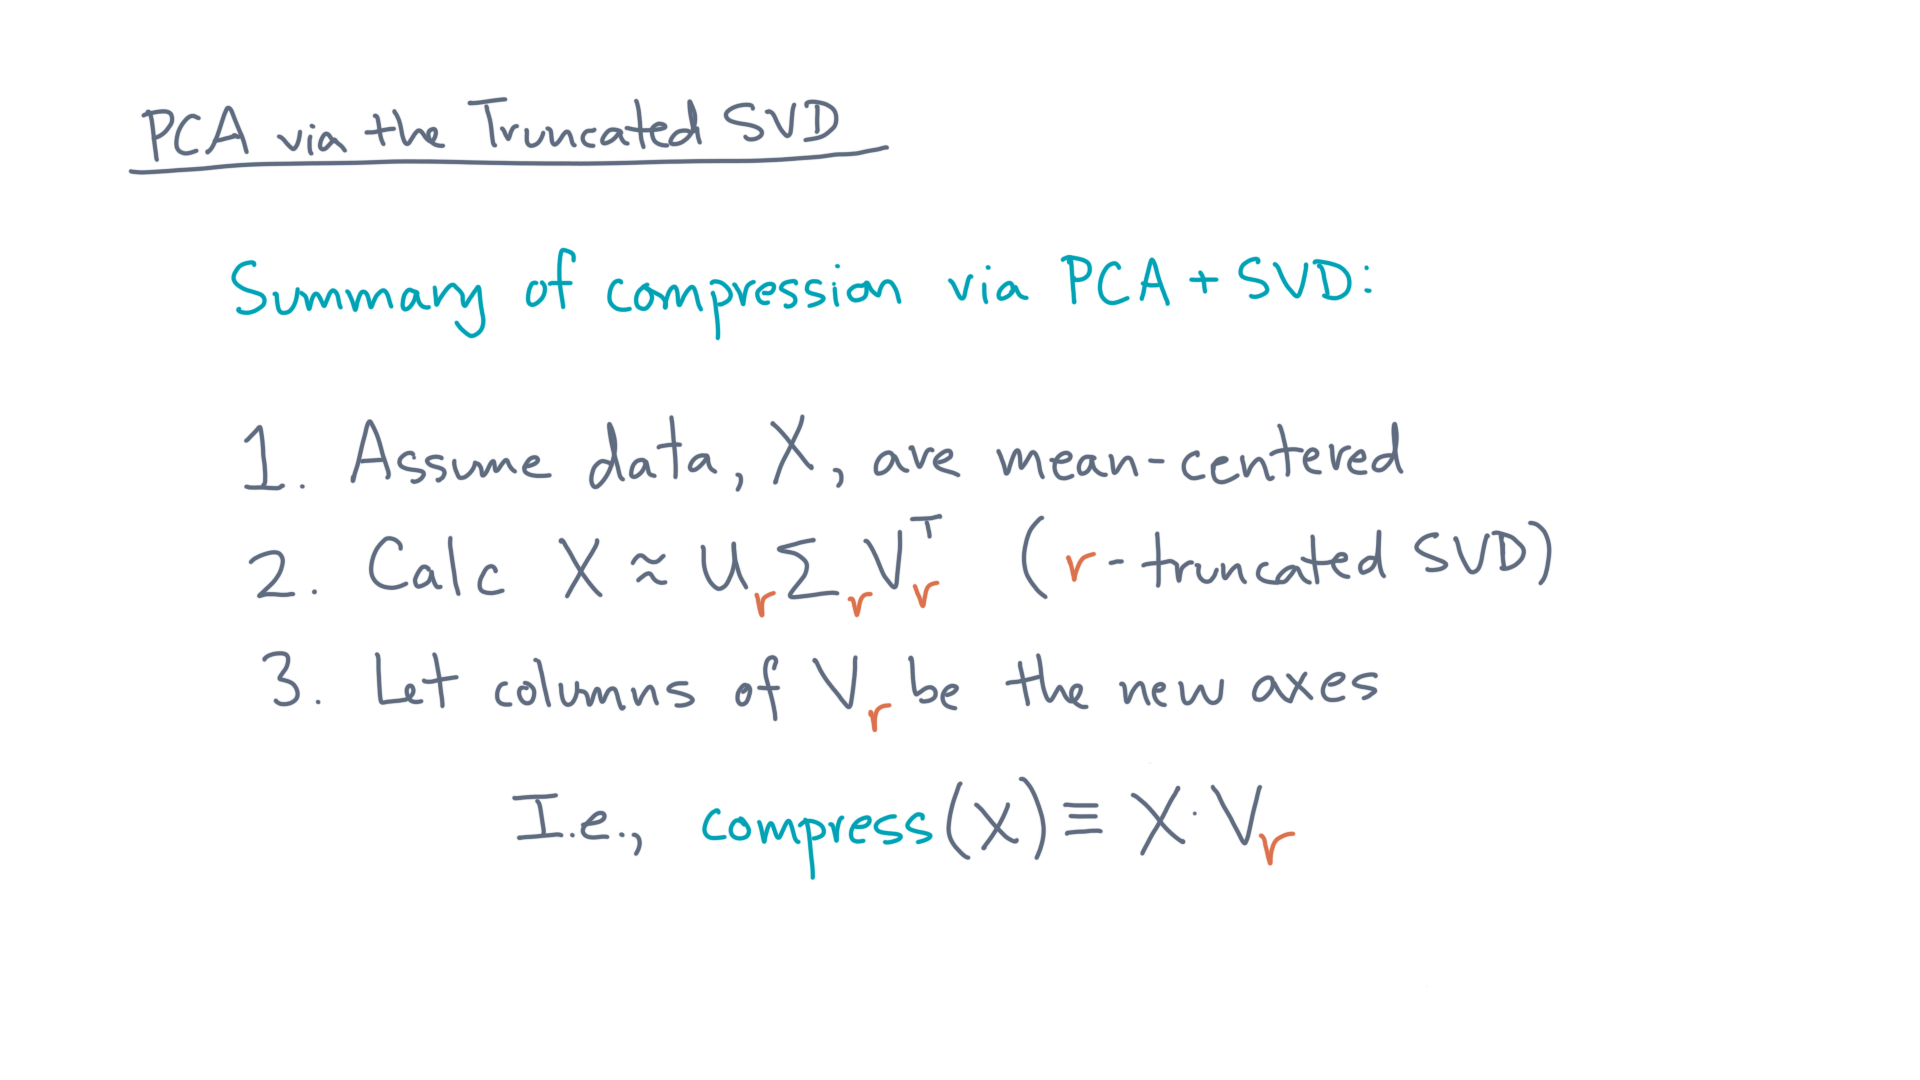 PCA via the Truncated SVD
Summary of compression via PCA + SVD:
1. Assume data, X, are mean-centered
2. Calc X ≈ U_r Σ_r V_r^T (r-truncated SVD)
3. Let columns of V_r be the new axes
I.e., compress(X) ≡ X · V_r